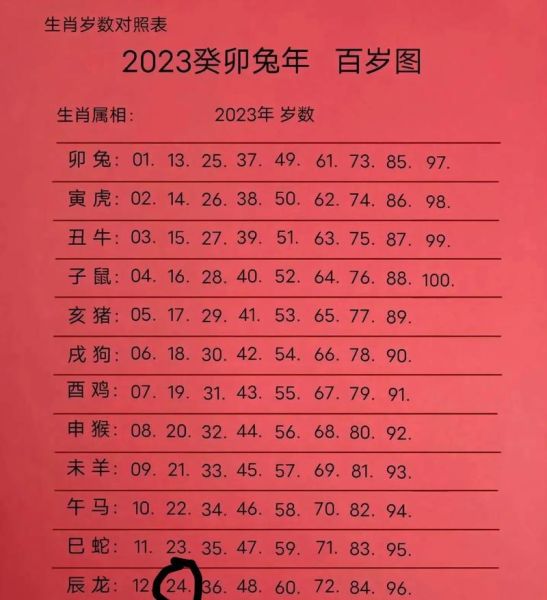 生肖岁数对照表
2023癸卯兔年 百岁图
生肖属相: 2023年 岁数
卯 兔: 01. 13. 25. 37. 49. 61. 73. 85. 97.
寅 虎: 02. 14. 26. 38. 50. 62. 74. 86. 98.
丑 牛: 03. 15. 27. 39. 51. 63. 75. 87. 99.
子 鼠: 04. 16. 28. 40. 52. 64. 76. 88. 100.
亥 猪: 05. 17. 29. 41. 53. 65. 77. 89.
戌 狗: 06. 18. 30. 42. 54. 66. 78. 90.
酉 鸡: 07. 19. 31. 43. 55. 67. 79. 91.
申 猴: 08. 20. 32. 44. 56. 68. 80. 92.
未 羊: 09. 21. 33. 45. 57. 69. 81. 93.
午 马: 10. 22. 34. 46. 58. 70. 82. 94.
巳 蛇: 11. 23. 35. 47. 59. 71. 83. 95.
辰 龙: 12. 24. 36. 48. 60. 72. 84. 96.